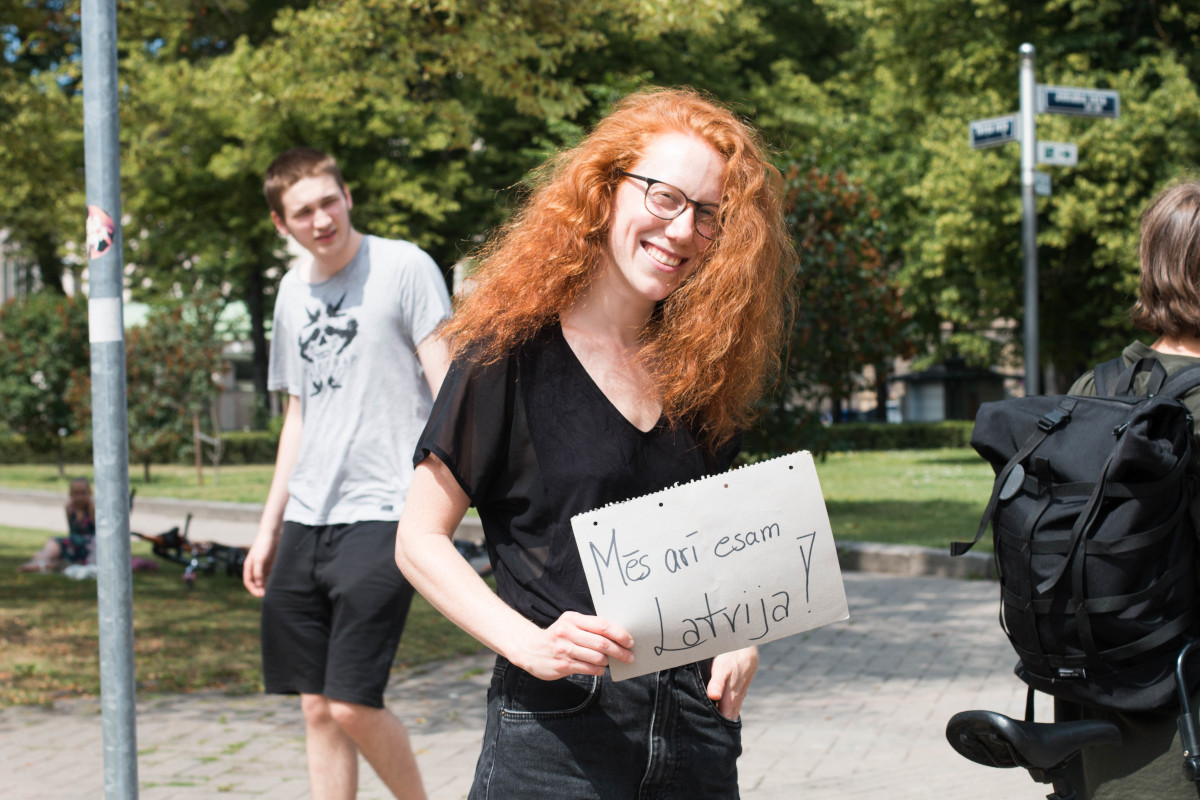 Mēs arī esam
Latvija!